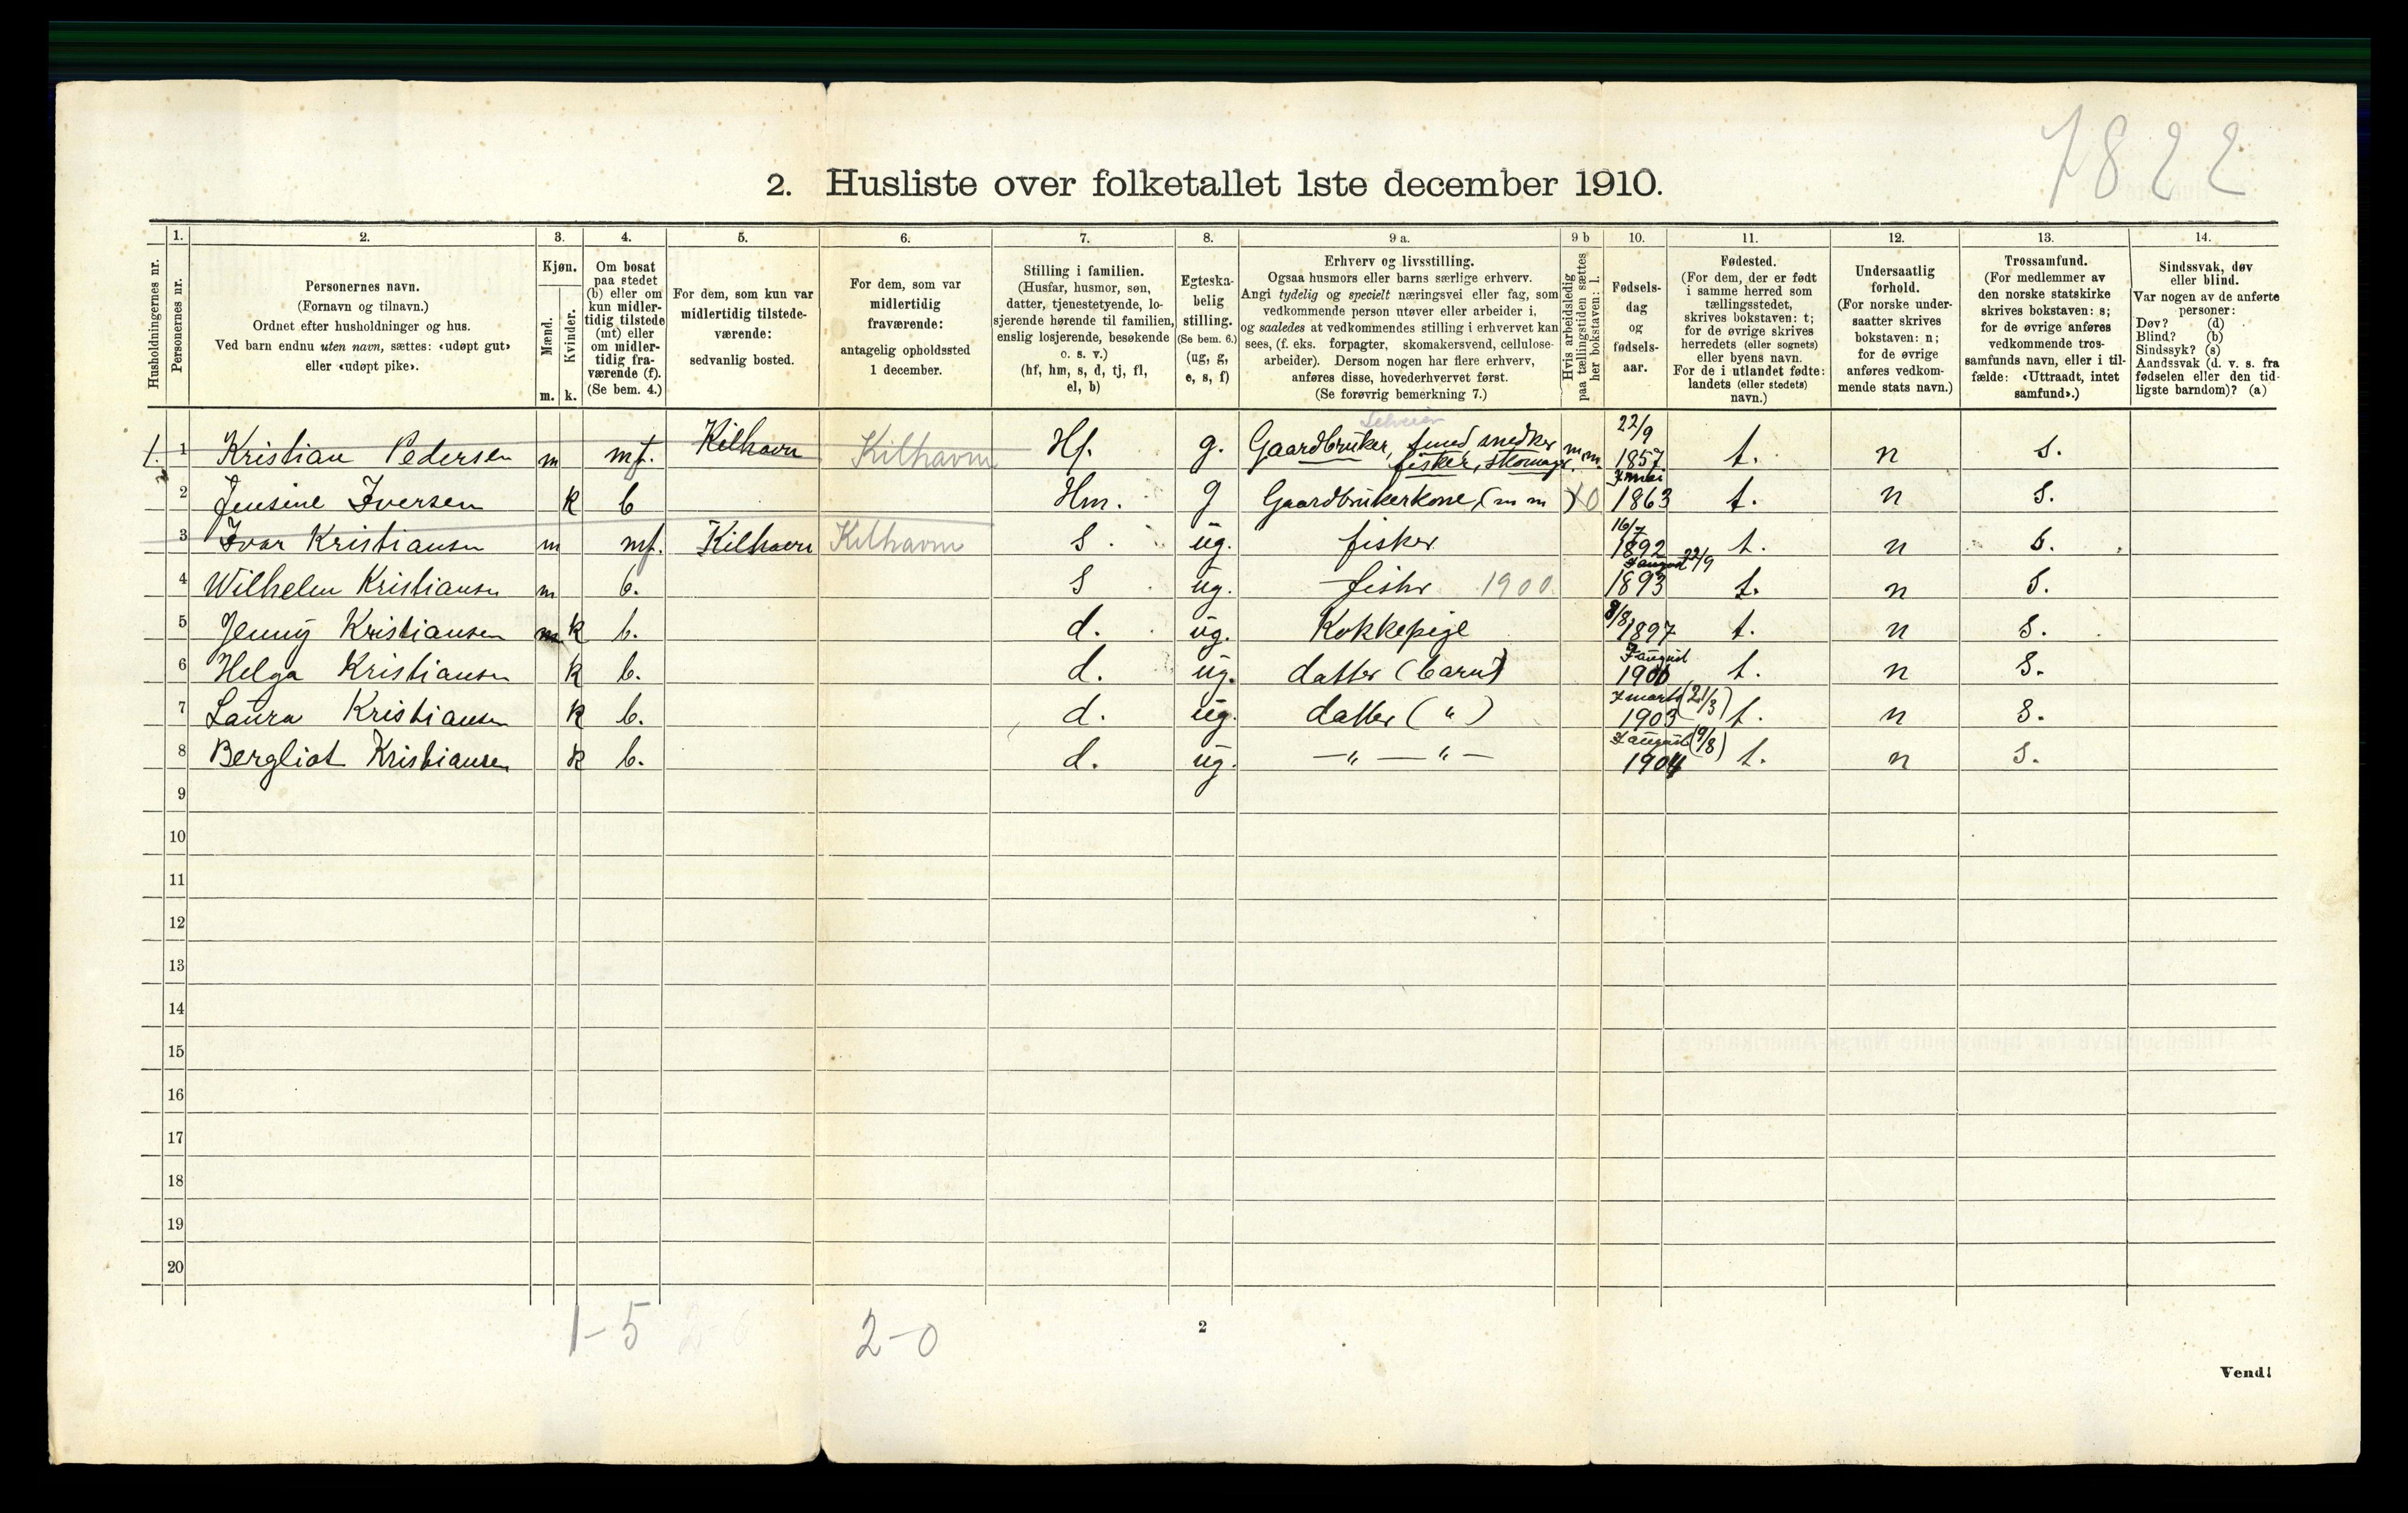 7822
2. Husliste over folketallet 1ste december 1910.
1. 2. 3. 4. 5. 6. 7. 8. 9 a. 9 b 10. 11. 12. 13. 14.
Husholdningernes nr.
Personernes nr.
Personernes navn.
(Fornavn og tilnavn.)
Ordnet efter husholdninger og hus.
Ved barn endnu uten navn, sættes: «udøpt gut»
eller «udøpt pike».
Kjøn.
Mænd.
Kvinder.
m. k.
Om bosat
paa stedet
(b) eller om
kun midler-
tidig tilstede
(mt) eller
om midler-
tidig fra-
værende (f).
(Se bem. 4.)
For dem, som kun var
midlertidig tilstede-
værende:
sedvanlig bosted.
For dem, som var
midlertidig
fraværende:
antagelig opholdssted
1 december.
Stilling i familien.
(Husfar, husmor, søn,
datter, tjenestetyende, lo-
sjerende hørende til familien,
enslig losjerende, besøkende
o. s. v.)
(hf, hm, s, d, tj, fl,
el, b)
Egteska-
belig
stilling.
(Se bem. 6.)
(ug, g,
e, s, f)
Erhverv og livsstilling.
Ogsaa husmors eller barns særlige erhverv.
Angi tydelig og specielt næringsvei eller fag, som
vedkommende person utøver eller arbeider i,
og saaledes at vedkommendes stilling i erhvervet kan
sees, (f. eks. forpagter, skomakersvend, cellulose-
arbeider). Dersom nogen har flere erhverv,
anføres disse, hovederhvervet først.
(Se forøvrig bemerkning 7.)
Hvis arbeidsledig
paa tællingstiden sættes
her bokstaven: l.
Fødsels-
dag
og
fødsels-
aar.
Fødested.
(For dem, der er født
i samme herred som
tællingsstedet,
skrives bokstaven: t;
for de øvrige skrives
herredets (eller sognets)
eller byens navn.
For de i utlandet fødte:
landets (eller stedets)
navn.)
Undersaatlig
forhold.
(For norske under-
saatter skrives
bokstaven: n;
for de øvrige
anføres vedkom-
mende stats navn.)
Trossamfund.
(For medlemmer av
den norske statskirke
skrives bokstaven: s;
for de øvrige anføres
vedkommende tros-
samfunds navn, eller i til-
fælde: «Uttraadt, intet
samfund».)
Sindssvak, døv
eller blind.
Var nogen av de anførte
personer:
Døv? (d)
Blind? (b)
Sindssyk? (s)
Aandssvak (d. v. s. fra
fødselen eller den tid-
ligste barndom)? (a)
1. 1 Kristian Pedersen m mt. Kilhavn Kilhavn Hf. g. Gaardbruker, smed snedker fisker, skomager m.m. 22/9 1857 t. n s.
2 Jensine Iversen k b Hm. g Gaardbrukerkone (m m) X0 mai 1863 t. n s.
3 Ivar Kristiansen m mt. Kilhavn Kilhavn S. ug. fisker 16/7 1892 t. n s.
4 Wilhelm Kristiansen m b. S ug. fisker 1900 august 22/9 1893 t. n s.
5 Jenny Kristiansen m k b. d. ug. Kokkepige 9/8 1897 t. n s.
6 Helga Kristiansen k b. d. ug. datter (barn) august 1900 t. n s.
7 Laura Kristiansen k b. d. ug. datter ( " ) marts (21/3) 1903 t. n s.
8 Bergliot Kristiansen k b. d. ug. — " — " — august (9/8) 1904 t. n s.
9
10
11
12
13
14
15
16
17
18
19
20
1-5 2-0
2
Vend!